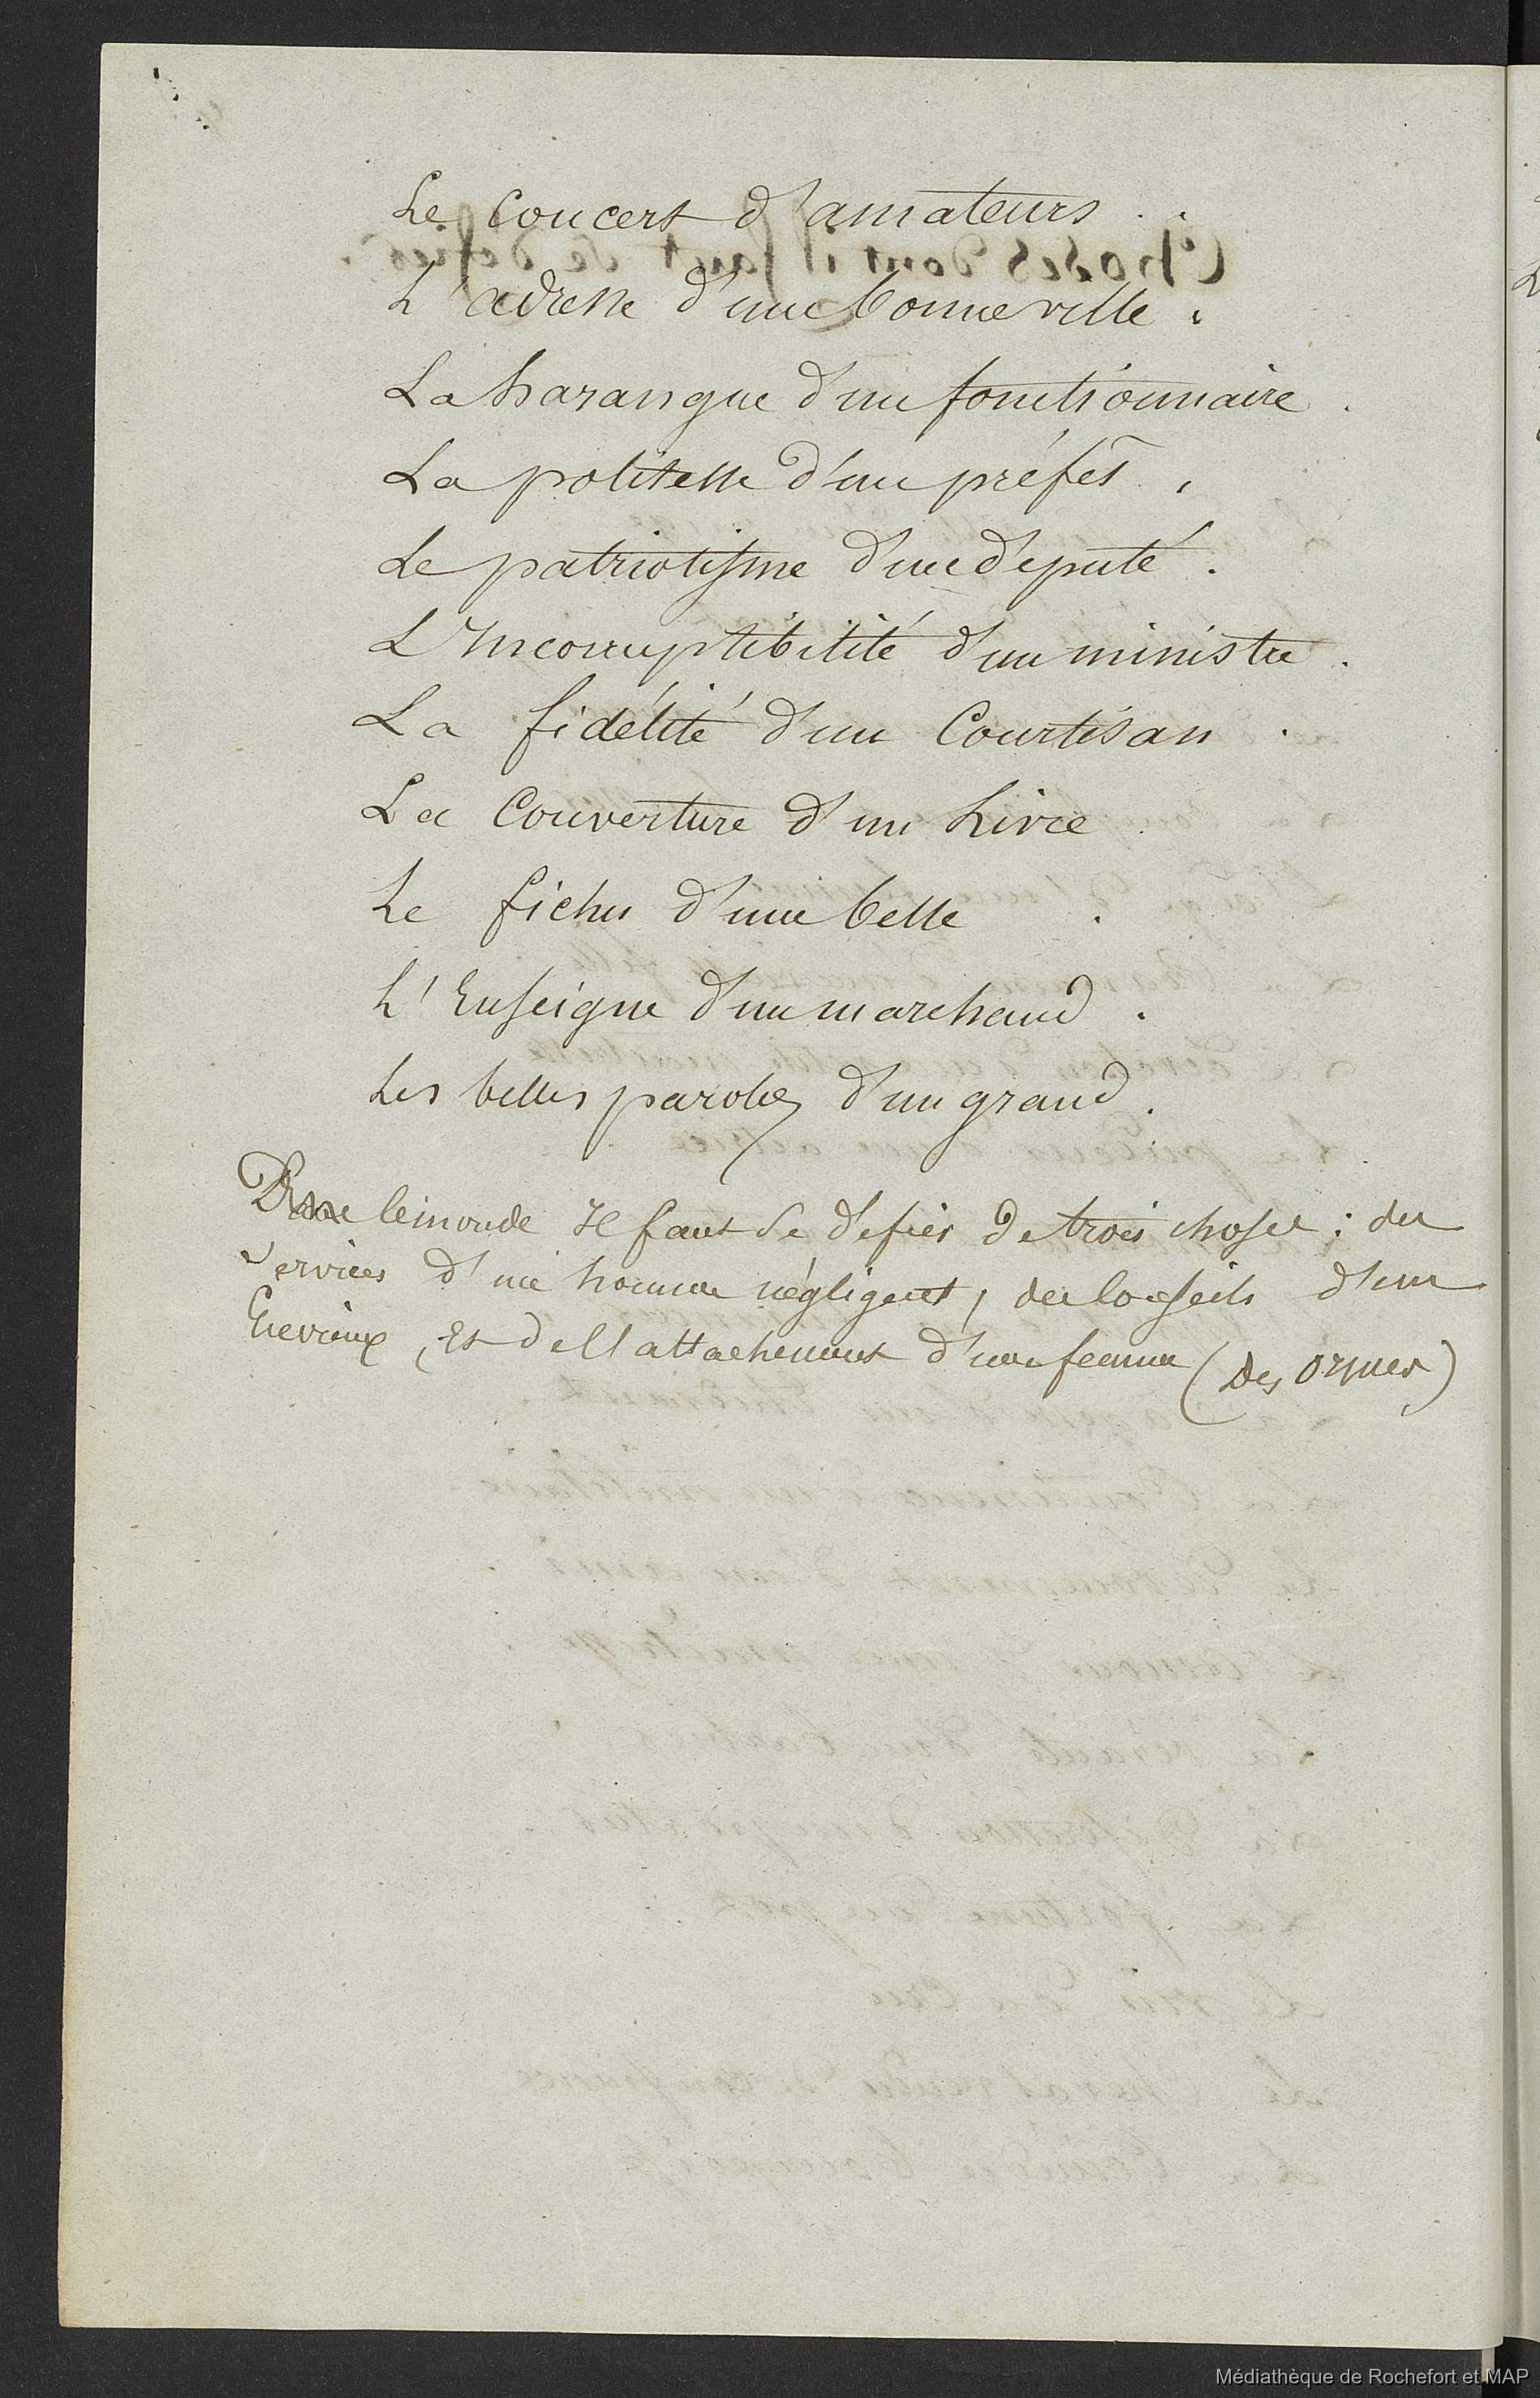 Le Concert d'amateurs .
L'adresse d'une bonne ville .
La harangue d'un fonctionnaire .
La politesse d'un préfet .
Le patriotisme d'un député .
L'Incorruptibilité d'un ministre .
La fidélité d'un Courtisan .
La Couverture d'un Livre .
Le fichu d'une belle .
L'Enseigne d'un marchand .
Les belles paroles d'un grand .
Dans le monde Il faut se défier de trois choses : des
services d'un homme négligent, des Conseils d'un
Envieux, Et de l'attachement d'une femme (Des Ormes)
Médiathèque de Rochefort et MAP